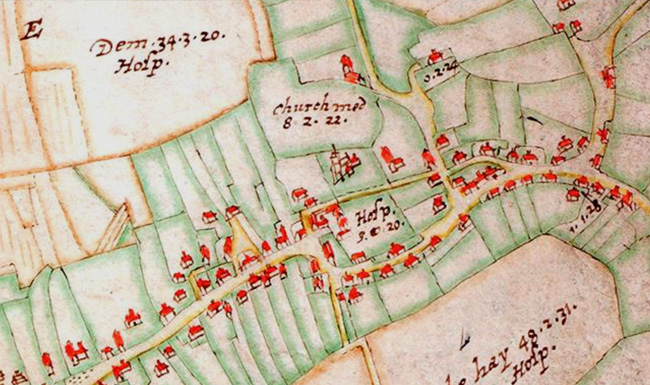 E
Dem. 34. 3. 20.
Hosp.
0. 2. 24
Church med
8. 2. 22.
Hosp.
5. 0. 20.
1. 1. 28
hay 48. 2. 31.
Hosp.